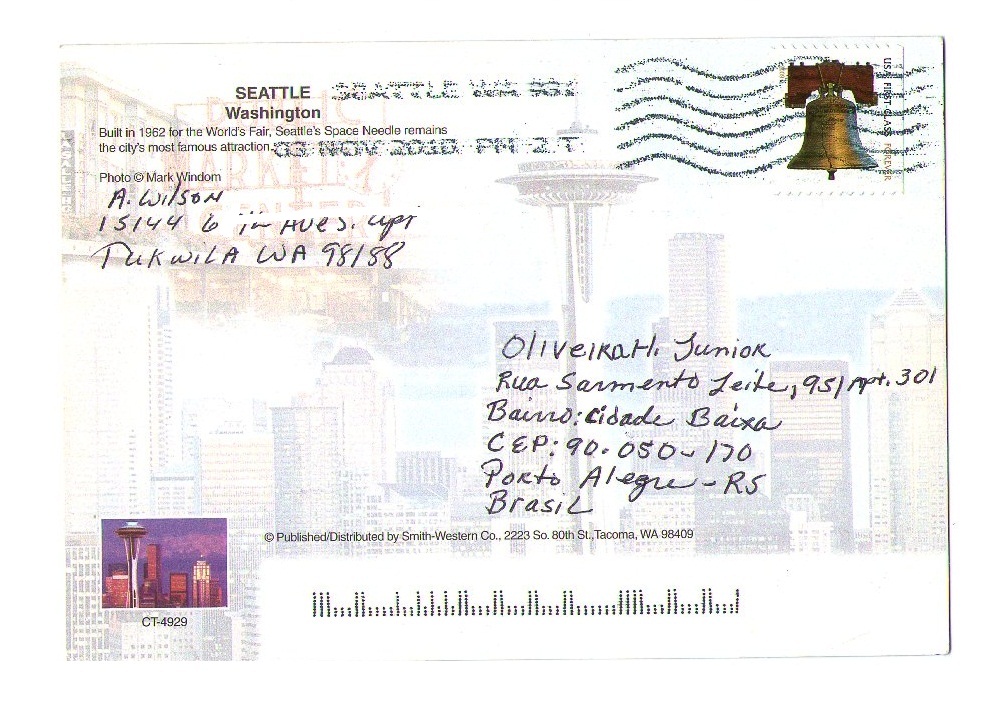 SEATTLE
Washington
Built in 1962 for the World's Fair, Seattle's Space Needle remains
the city's most famous attraction.
Photo © Mark Windom
SEATTLE WA 981
03 NOV 2010 PM 2 T
USA FIRST-CLASS FOREVER
A. Wilson
15144 6 in Ave S. Apt
Tukwila WA 98188
Oliveira H. Junior
Rua Sarmento Leite, 951 Apt. 301
Bairro: Cidade Baixa
CEP: 90.050-170
Porto Alegre - RS
Brasil
© Published/Distributed by Smith-Western Co., 2223 So. 80th St., Tacoma, WA 98409
CT-4929